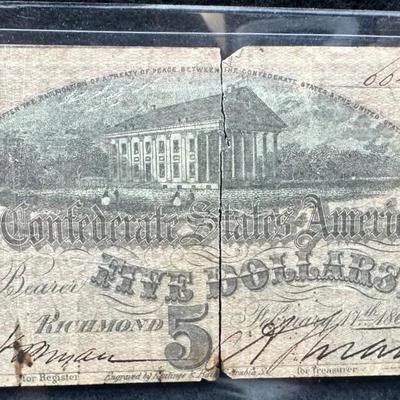 AFTER THE RATIFICATION OF A TREATY OF PEACE BETWEEN THE CONFEDERATE STATES & THE UNITED STATES
Confederate States America
Bearer FIVE DOLLARS
RICHMOND 5 February 17th 18
for Register Engraved by Keatinge & Ball for Treasurer